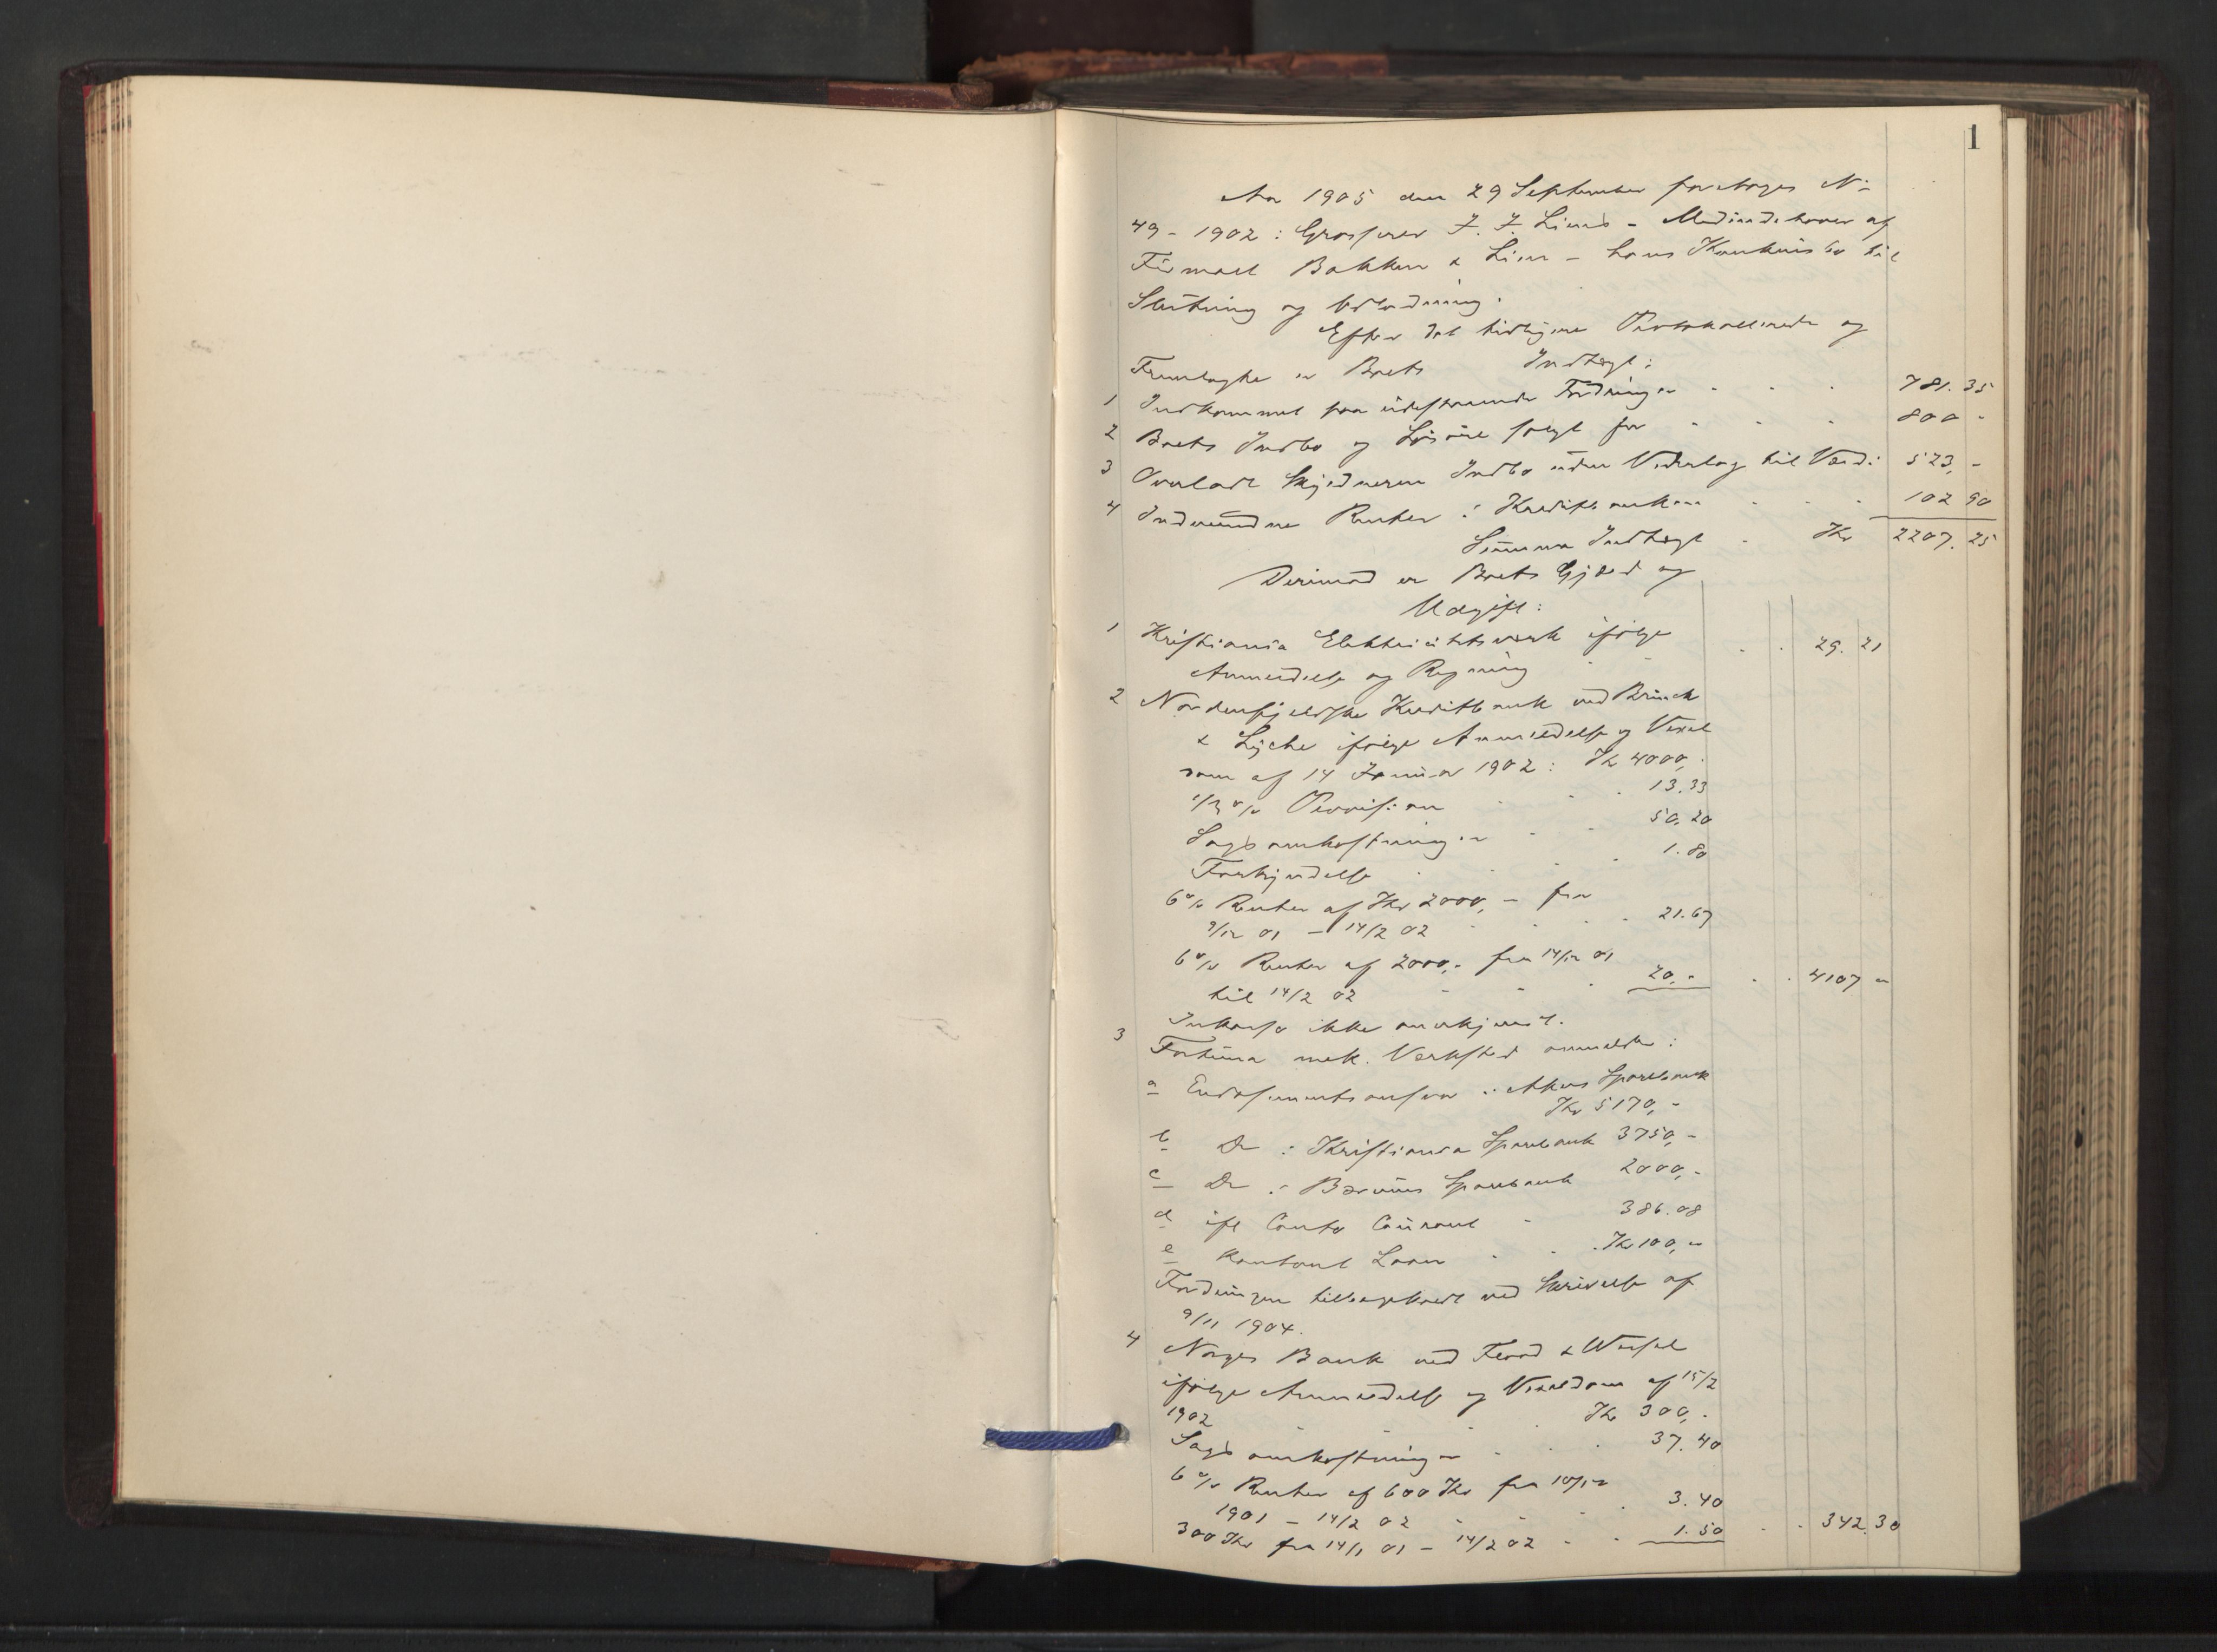 1
Aar 1905 den 29 September foretoges No
49 - 1902: Grosserer J. J. Liens - Medindehaver af
Firmaet Bakken & Lien - hans Konkursbo til
Slutning og Udlodning.
Efter det tidligere Protokollerede og
Fremlagte er Boets Indtægt:
1 Indkommet paa udestaaende Fordringer - - - 781.35
2 Boets Indbo og Løsøre solgt for - - - 800 -
3 Overladt Skyldneren Indbo uden Vederlag til Værdi 523,-
4 Indvundne Renter i Kreditbanken - - - 102 90
Summa Indtægt - Kr 2207.25
Derimod er Boets Gjæld og
Udgift:
1 Kristiania Elektricitetsværk ifølge
Anmeldelse og Regning - - - 29. 21
2 Nordenfjeldske Kreditbank ved Bruch
& Lyche ifølge Anmeldelse og Vexel
dom af 14 Januar 1902: Kr 4000,-
1/3 % Provision - - - 13.33
Sagsomkostninger - - 50.20
Forkyndelse - - - 1.80
6 % Renter af Kr 2000,- fra
9/12 01 - 14/2 02 - - - 21.67
6 % Renter af 2000,- fra 14/12 01
til 14/2 02 - - - 20,- - - 4107 -
Inkasso ikke anerkjendt.
3 Fortuna mek. Værksted anmeldte:
a Endossementsansvar i Akers Sparebank
Kr 5170,-
b Do i Kristiania Sparebank 3750,-
c Do i Bærums Sparebank 2000,-
d ifl Conto Courant - 386.08
e Kontant Laan - - Kr 100,-
Fordringen tilbagekaldt ved Skrivelse af
9/11 1904.
4 Norges Bank ved
ifølge Anmeldelse og Vexeldom af 15/2
1902 - - - Kr 300,-
Sagsomkostninger - - - 37.40
6 % Renter af 600 Kr fra 10/12
1901 - 14/2 02 - - - 3.40
300 Kr fra 14/1 01 - 14/2 02 - - 1.50 - - 342.30